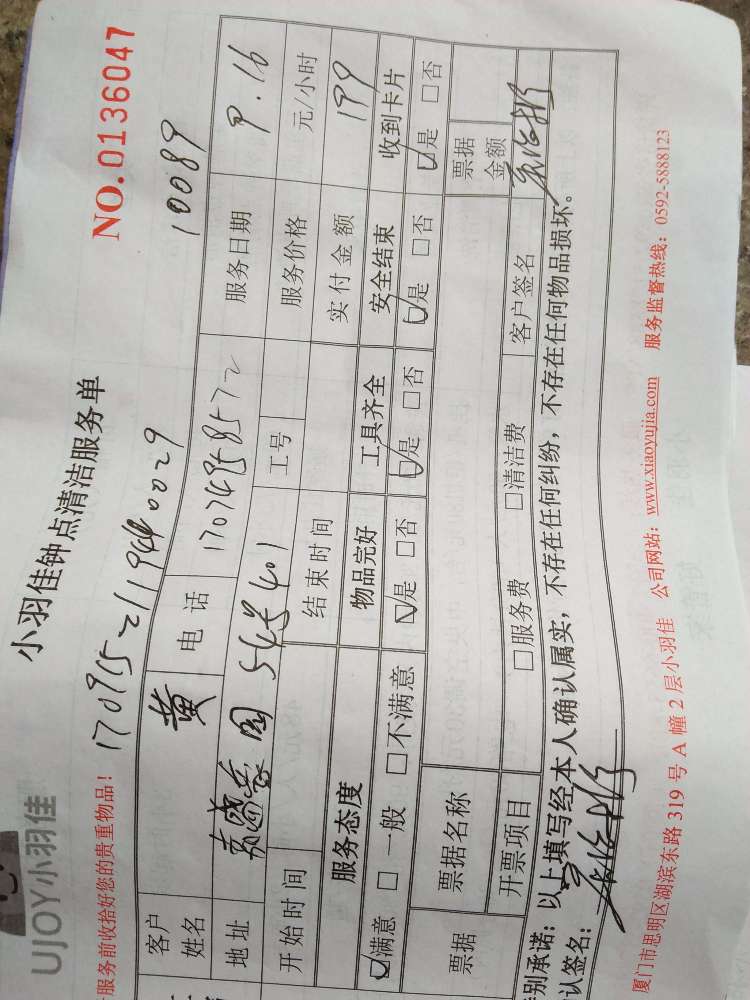 UJOY小羽佳
小羽佳钟点清洁服务单
NO.0136047
服务前收拾好您的贵重物品!
1709152119440029
10089
客户姓名 黄 电话 17074958572 服务日期 9.16
地址 嘉盛豪园 54号401 工号 服务价格 元/小时
开始时间 结束时间 实付金额 199
服务态度 物品完好 工具齐全 安全结束 收到卡片
☑满意 □一般 □不满意 ☑是 □否 ☑是 □否 ☑是 □否 ☑是 □否
票据 票据名称 票据金额
开票项目 □服务费 □清洁费 客户签名
别承诺:以上填写经本人确认属实,不存在任何纠纷,不存在任何物品损坏。
认签名:
厦门市思明区湖滨东路 319 号 A 幢 2 层小羽佳 公司网站:www.xiaoyujia.com 服务监督热线:0592-5888123